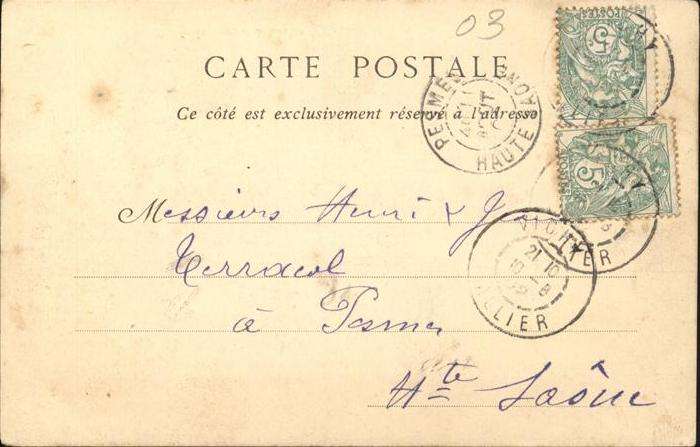 03
CARTE POSTALE
Ce côté est exclusivement réservé à l'adresse
PESMES HAUTE SAONE
AOUT
POSTES
5c
5c
VICHY
ALLIER
21 10
10 - 8
Messieurs Henri & J
à Pesmes
Hte Saône